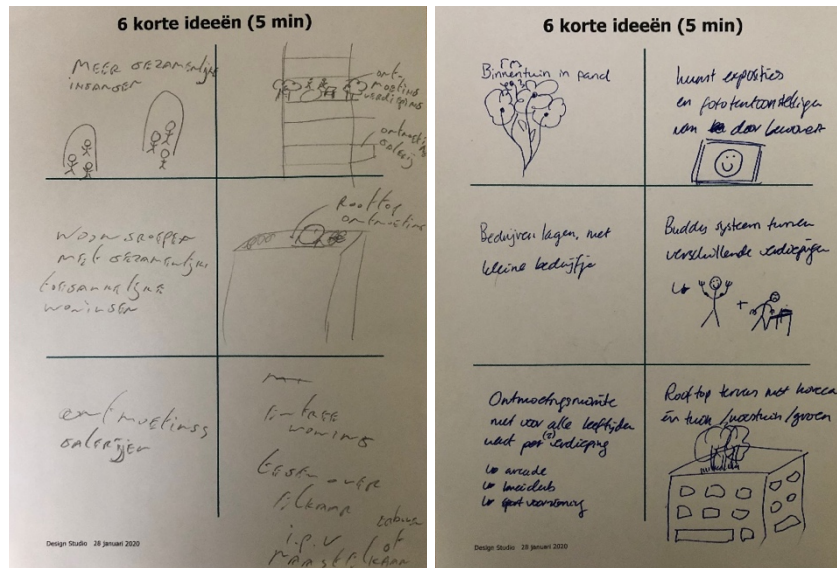 6 korte ideeën (5 min)
MEER GEZAMENLIJKE
INGANGEN
ont-
moetings
verdieping
ontmoeting
galerij
WOONGROEPEN
MET GEZAMENLIJKE
WONINGEN
ROOFTOP
ONTMOETING
ontmoetings
GALERIJEN
ENTREE
WONING
TEGENOVER
ELKAAR
i.p.v
of
Design Studio 28 januari 2020
6 korte ideeën (5 min)
Binnentuin in pand
kunst exposities
en fototentoonstellingen
van door bewoners
Bedrijven lagen, met
kleine bedrijfje
Buddy systeem tussen
verschillende verdiepingen
+
Ontmoetingsruimte
met voor alle leeftijden
wat per verdieping
↳ arcade
↳ breiclub
↳ sport voorziening
Rooftop terras met horeca
én tuin / moestuin / groen
Design Studio 28 januari 2020